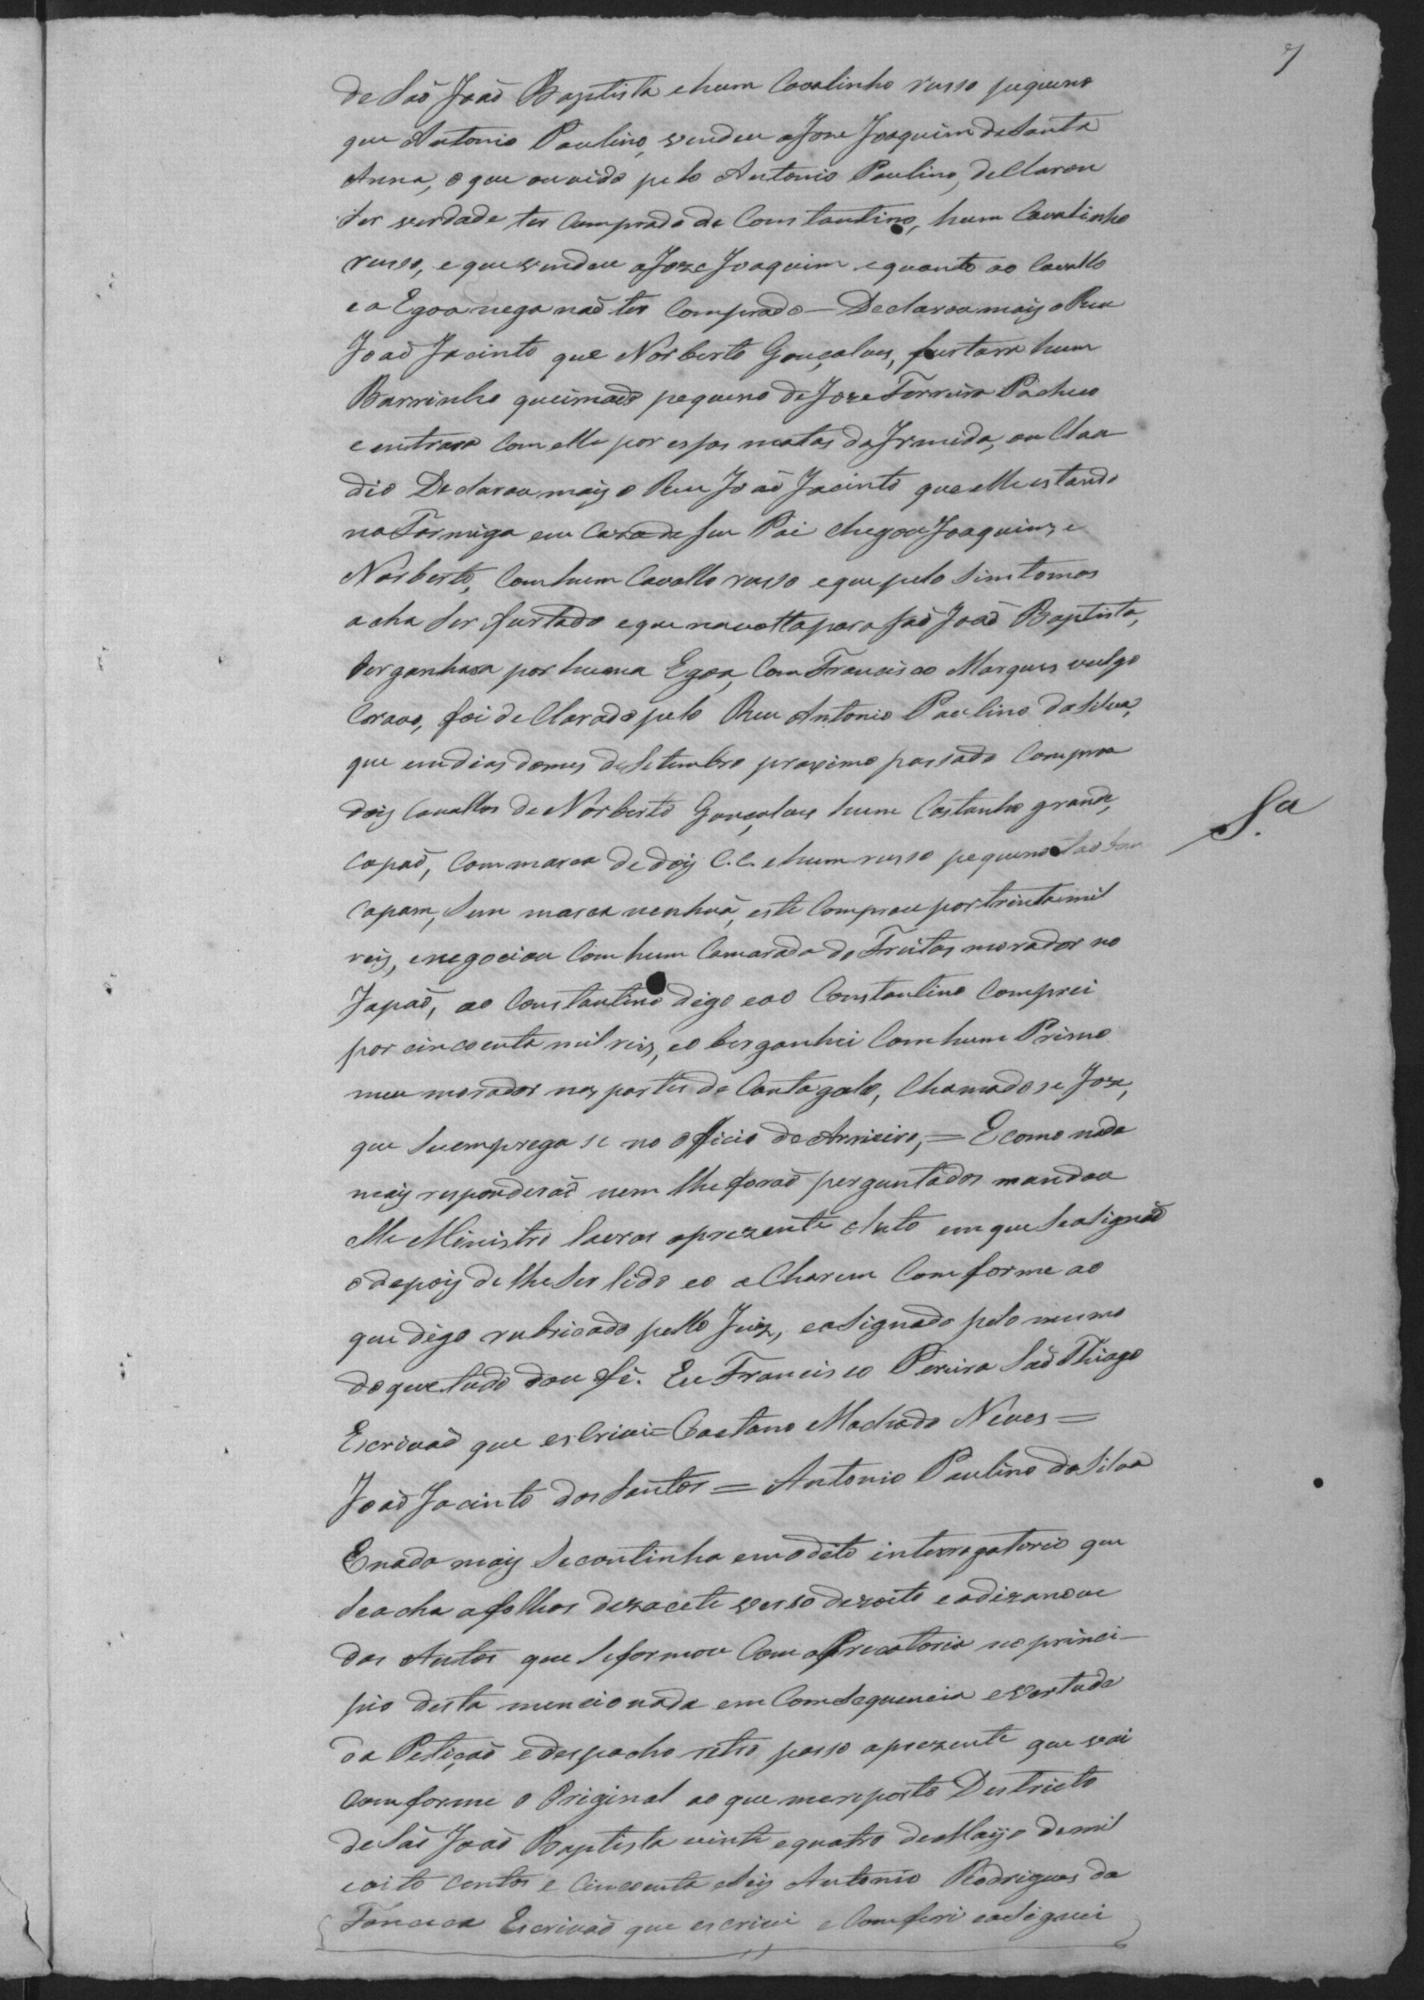 7
de Saõ Joaõ Baptista ehum Cavalinho russo pequeno
que Antonio Paulino, vendeu a Joze Joaquim de Santa
Anna, o que ouvido pelo Antonio Paulino, deClarou
ser verdade ter Comprado de Constantino, hum Cavalinho
russo, e que vendeu a Joze Joaquim e quanto ao Cavallo
e a Egoa nega naõ ter Comprado — Declarou mais o Reu
Joaõ Jacinto que Norberto Gonçalves, furtara hum
Burrinho queimado pequeno de Joze Ferreira Pacheco
e entrara Com elle por essas matas da Ermida, ou Clau
dio Declarou mais o Reu Joaõ Jacinto que elle estando
na Formiga em Caza de seu Pai chegou Joaquim, e
Norberto, Com hum Cavallo russo e que pelo Simtomas
acha Ser furtado e que na volta para Saõ Joaõ Baptista,
berganhara por huma Egoa, Com Francisco Marques vulgo
Coravo, foi deClarado pelo Reu Antonio Paulino da Silva,
que em dias do mes de Setembro proximo passado Comprou
dois Cavallos de Norberto Gonçalves hum Castanho grande,
capaõ, Com marca de dois C.C. e hum russo pequeno
S.a
capam, Sem marca nenhuã, este Comprou por trinta mil
reis, e negociou Com hum Camarada do Freitas morador no
Japaõ, ao Constantino digo e ao Constantino Comprei
por cincoenta mil reis, e o berganhei Com hum Primo
meu morador nas partes de Cantagalo, Chamado se Joze,
que Se emprega se no officio de Arrieiro, = E como nada
mais responderaõ nem lhe foraõ perguntados mandou
elle Ministro lavrar aprezente Auto em que Se asignaõ
e depois de lhe Ser lido e o aCharem Comforme ao
que digo rubricado pello Juiz, e asignado pelo mesmo
do que tudo dou fé. Eu Francisco Pereira Saõ Thiago
Escrivaõ que esCrivi = Caetano Machado Neves =
Joaõ Jacinto dos Santos = Antonio Paulino da Silva
E nada mais Se continha em o dito interrogatorio que
Se acha a folhas dezacete verso dezoito e adizanove
dos Autos que Se formou Com aPrecatoria no princi-
pio desta mencionada em Comsequencia e vertude
da Petiçaõ e despacho retro passo aprezente que vai
Comforme o Original ao que me reporto Destricto
de Saõ Joaõ Baptista vinte e quatro de Mayo de mil
e oito centos e Cincoenta e Seis Antonio Rodrigues da
Fonceca Escrivaõ que escrivi e Comferi e asignei